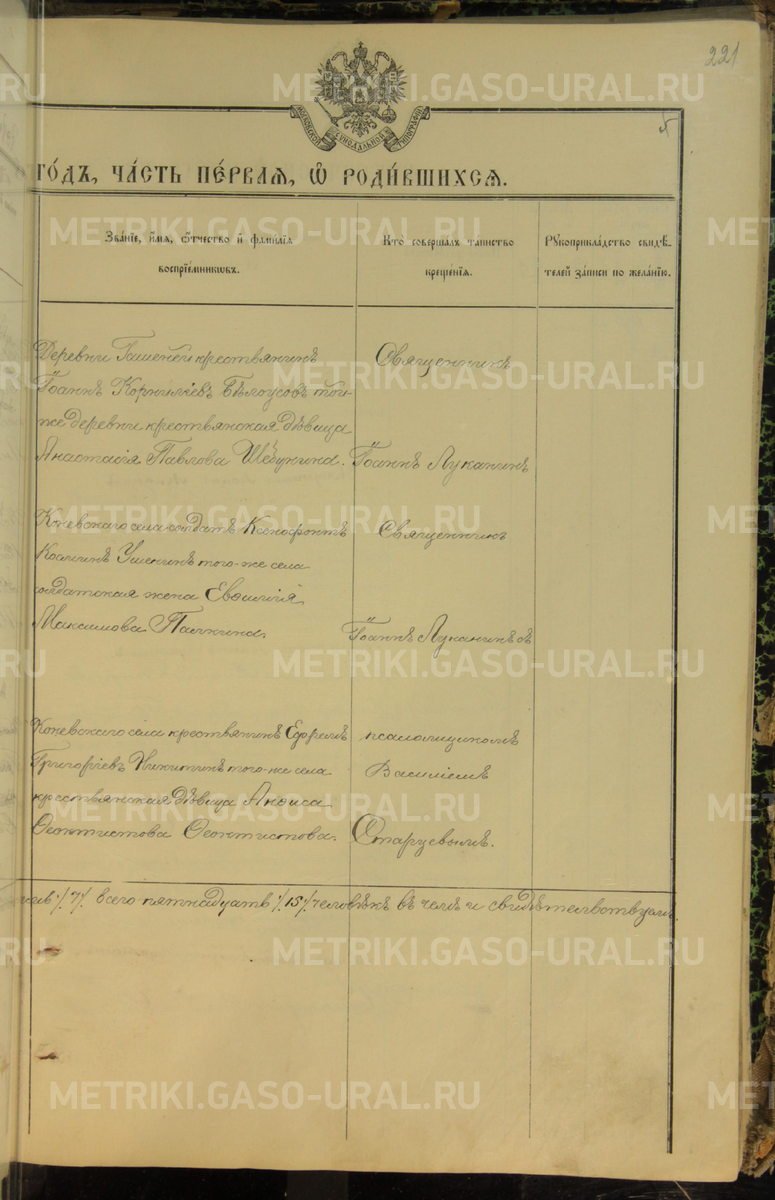 221
МОСКОВСКОЙ СѴНОДАЛЬНОЙ ТИПОГРАФІИ
го́дъ, ча́сть пе́рваѧ, ѡ҆ роди́вшихсѧ.
Зва́нїе, и҆́мѧ, ѻ҆́тчество и҆ фами́лїѧ воспрїе́мникѡвъ.
Кто̀ соверша́лъ та́инство креще́нїѧ.
Рꙋкоприкла́дство свидѣ́телей за́писи по жела́нїю.
Деревни Гашеней крестьянинъ
Іоаннъ Корниліевъ Бѣлоусовъ той-
же деревни крестьянская дѣвица
Анастасія Павлова Шебунина.
Священникъ
Іоаннъ Луканинъ
Коневскаго села солдатъ Ксенофонтъ
Козминъ Ушенинъ того-же села
солдатская жена Евѳимія
Максимова Палкина.
Священникъ
Іоаннъ Луканинъ съ
Коневскаго села крестьянинъ Ефремъ
Григоріевъ Никитинъ того-же села
крестьянская дѣвица Анфиса
Ѳеоктистова Ѳеоктистова.
псаломщикомъ
Василіемъ
Старцевымъ.
7/. всего пятнадцать /.15/. человѣкъ въ чемъ и свидѣтелствуемъ
METRIKI.GASO-URAL.RU